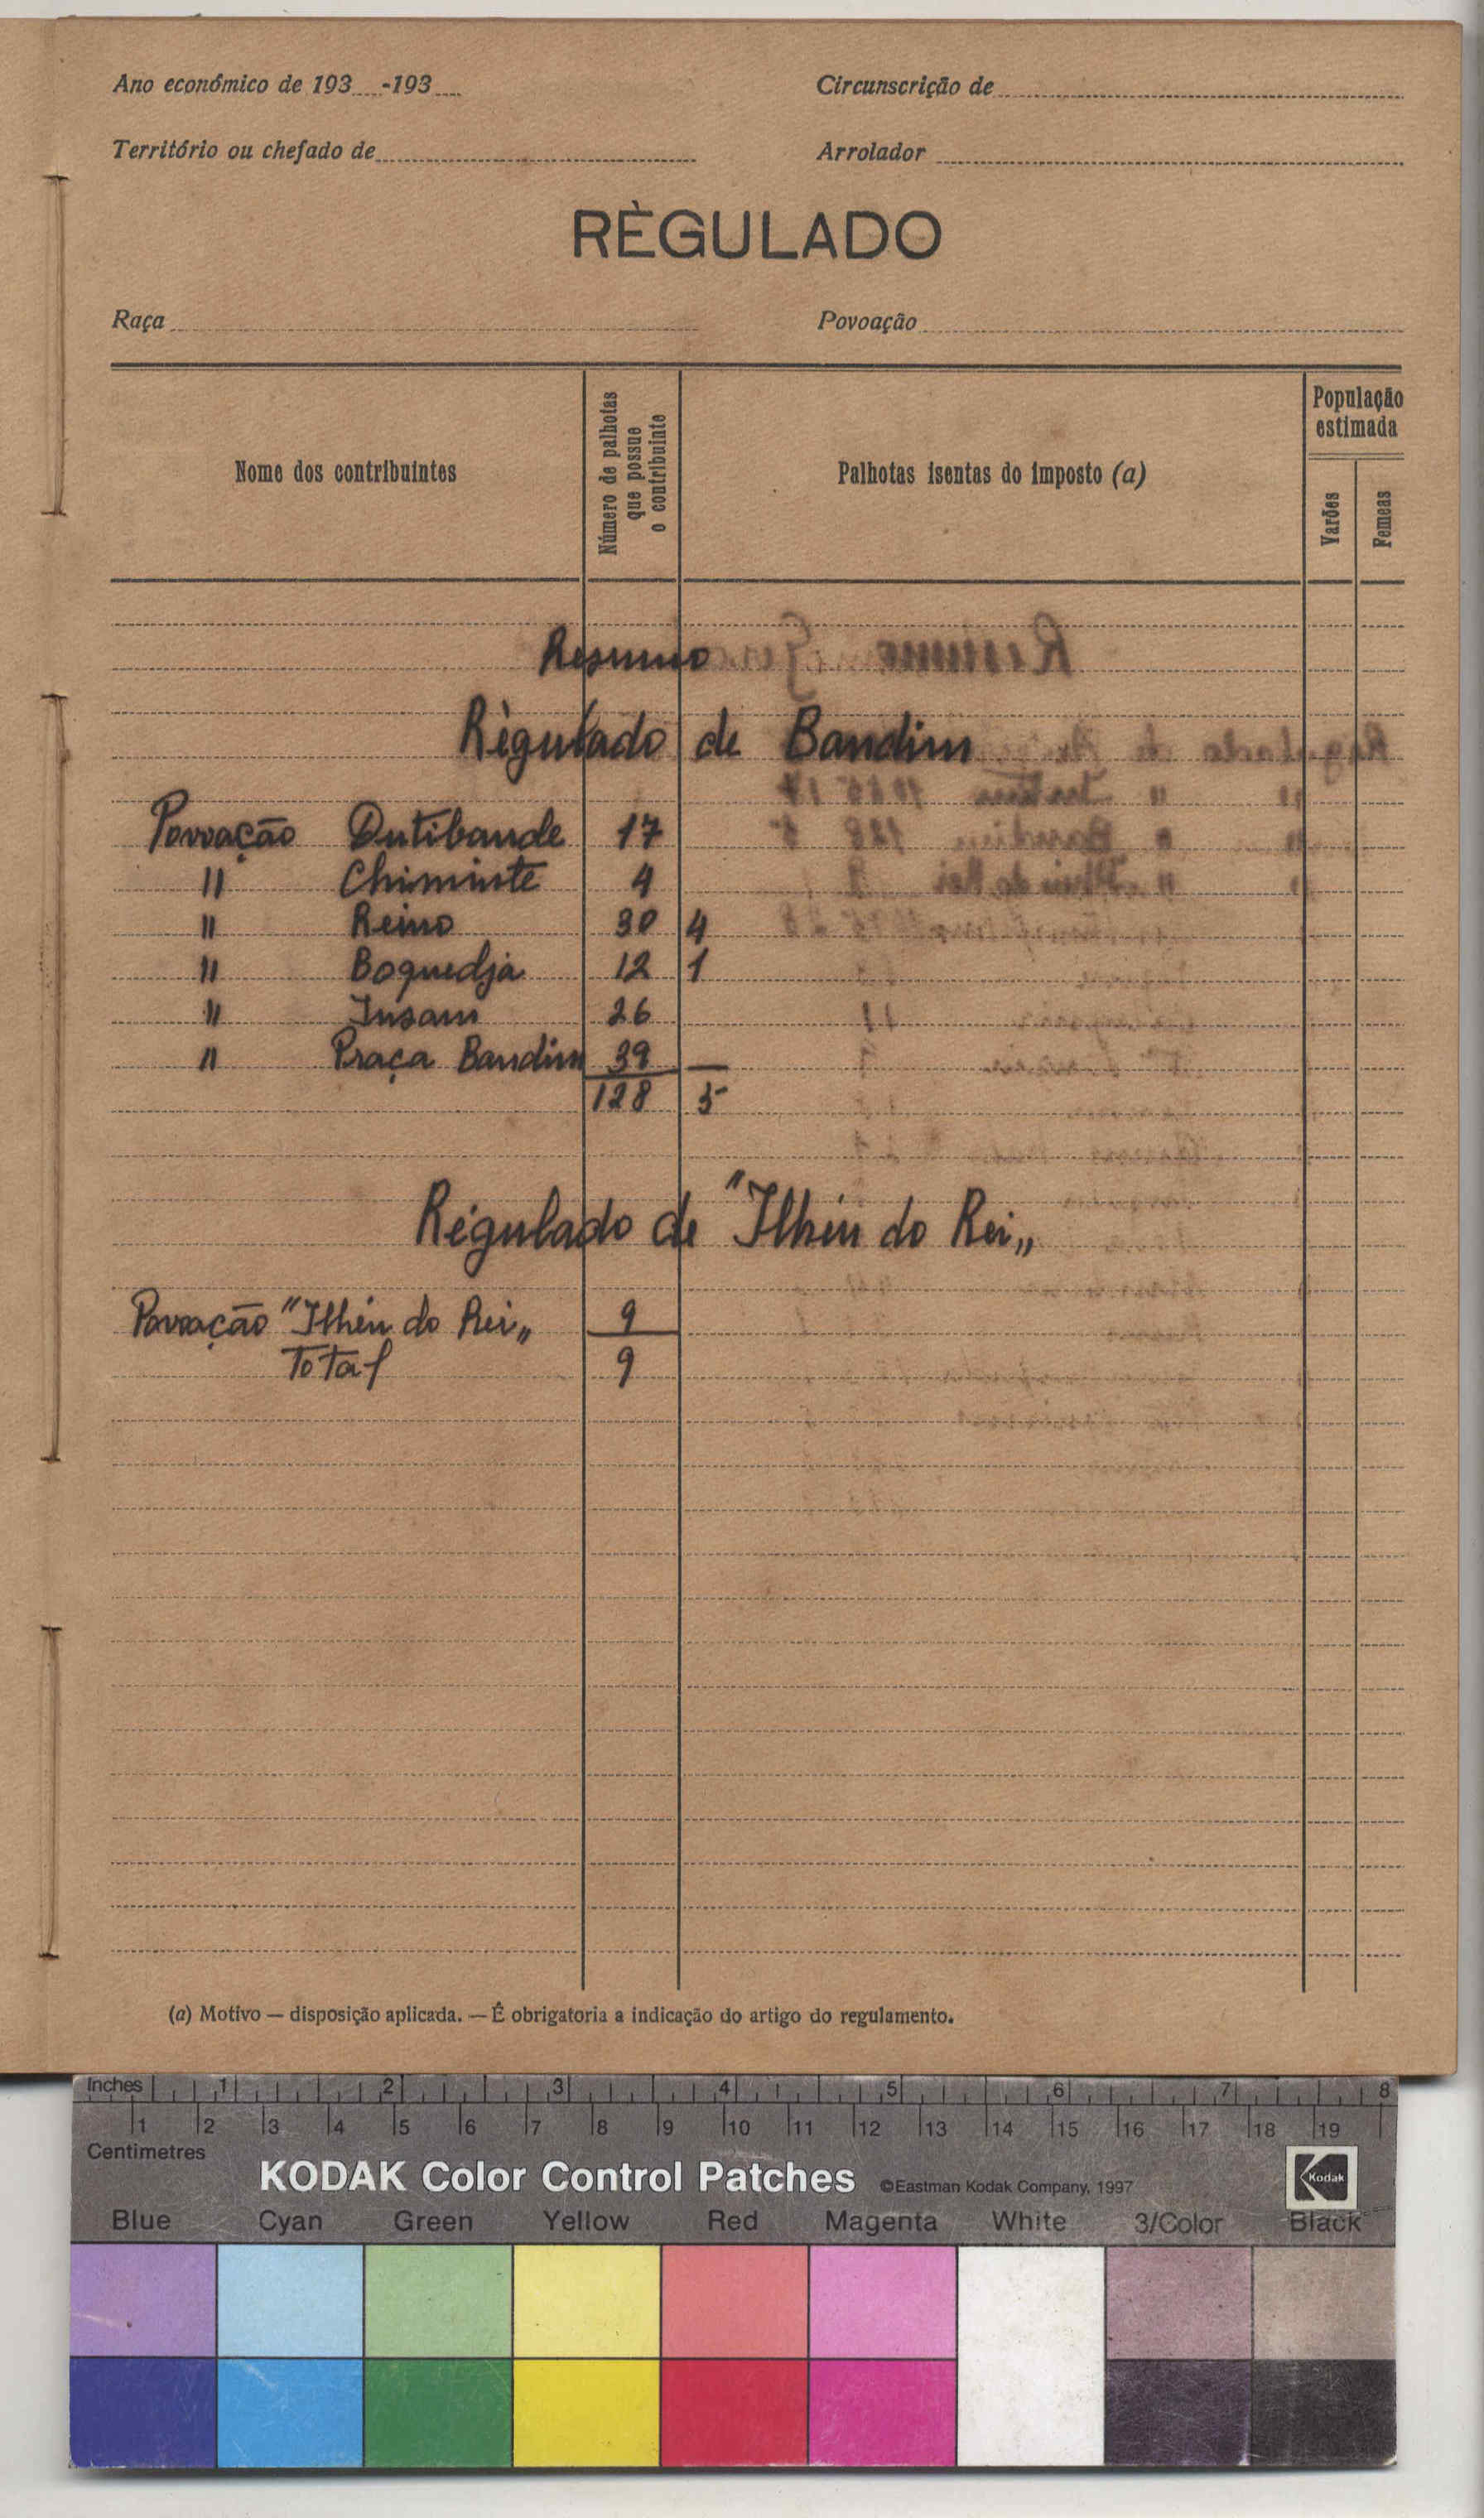 Ano económico de 193 -193
Circunscrição de
Território ou chefado de
Arrolador
RÈGULADO
Raça
Povoação
Nome dos contribuintes
Número de palhotas que possue o contribuinte
Palhotas isentas do imposto (a)
População estimada
Varões
Femeas
Resumo
Règulado de Bandim
Povoação Dutibande 17
" Chiminte 4
" Reino 30 4
" Boquedja 12 1
" Insam 26
" Praça Bandim 39 —
128 5
Régulado de "Ilhéu do Rei„
Povoação "Ilhéu do Rei„ 9
Total 9
(a) Motivo — disposição aplicada. — É obrigatoria a indicação do artigo do regulamento.
Inches 1 2 3 4 5 6 7 8
1 2 3 4 5 6 7 8 9 10 11 12 13 14 15 16 17 18 19
Centimetres
KODAK Color Control Patches ©Eastman Kodak Company, 1997 Kodak
Blue Cyan Green Yellow Red Magenta White 3/Color Black